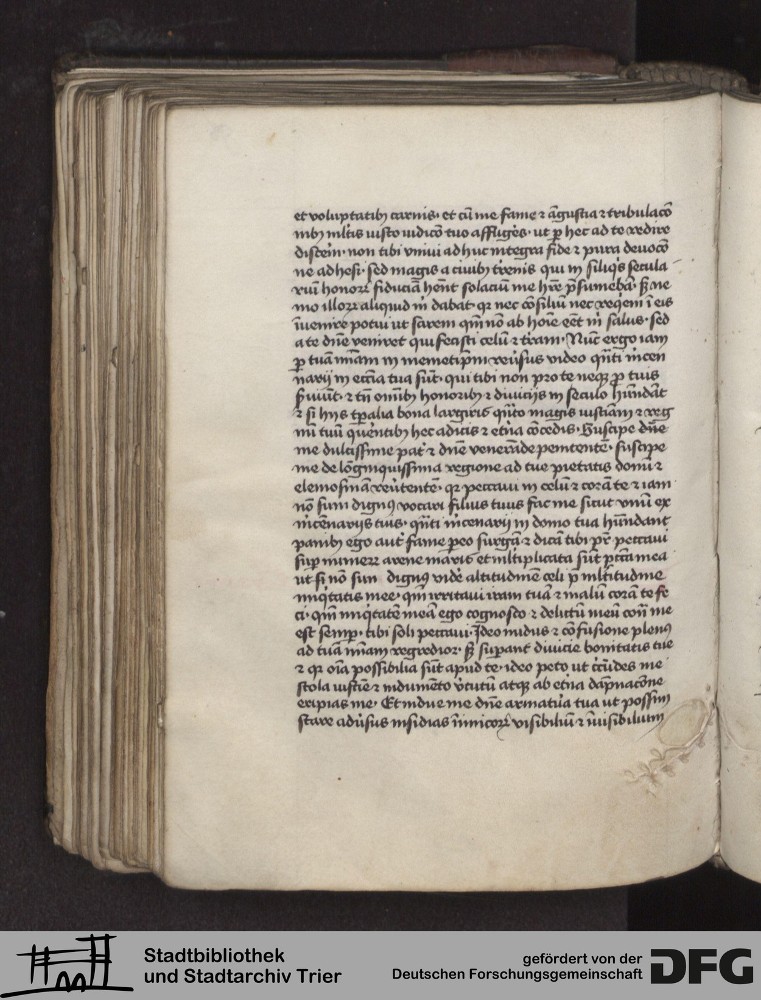 et voluptatibꝫ carnis· et cū me fame ⁊ āgustia ⁊ tribulacō
nibꝫ mltis iusto iudicō tuo affligēs· ut ꝑ hec ad te redire
discerē· non tibi vniui adhuc integra fide ⁊ pura deuocō
ne adhesi· sed magis a ciuibꝫ t̄renis qui in siliq̄s secula
riū honorꝝ fiduciā hēnt solaciū me hr̄e p̄sumebā· sꝫ ne
mo illorꝝ aliquid m̄ dabat· qꝛ nec cōsiliū nec req̄em ī eis
īuenire potui ut scirem qm̄ nō ab hoīe eēt m̄ salus· sed
a te dn̄e veniret qui fecisti celū ⁊ t̄ram· Nūc ergo iam
ꝑ tuā mīam in memetip̄m reūsus video qn̄ti mcen
narij in ecc̄ia tua sūt· qui tibi non pro te neqꝫ ꝑ tuis
uiūt· ⁊ tn̄ om̄ibꝫ honoribꝫ ⁊ diuicijs in seculo hūndāt
⁊ si hijs tꝑalia bona largiris qn̄to magis iusticiam ⁊ reg
nū tuū querentibꝫ hec adicis ⁊ et̄na cōcedis· Suscipe dn̄e
me dulcissime pat̄ ⁊ dn̄e venerāde penitentē· suscipe
me de lōginquissima regione ad tue pietatis domū ⁊
elemosinā reūtentē· qꝛ peccaui in celū ⁊ corā te ⁊ iam
nō sum dignꝰ vocari filius tuus fac me sicut vnū ex
mcēnarijs tuis· qn̄ti mcenarij in domo tua hūndant
panibꝫ ego aut̄ fame ꝑeo surgā ⁊ dicā tibi pr̄· peccaui
suꝑ numerꝝ arene maris et mltiplicata sūt pctā mea
ut si nō sun dignꝰ vidē altitudinē celi p̄ mltitudine
iniq̄tatis mee· qm̄ irritaui iram tuā ⁊ malū corā te fe
ci· qm̄ iniq̄tatē meā ego cognosco ⁊ delictū meū cont̄ me
est semꝑ· tibi soli peccaui· Ideo nudus ⁊ cōfusione plenꝰ
ad tuā mīam regredior· sꝫ suꝑant diuicie bonitatis tue
⁊ qꝛ oīa possibilia sūt apud te· ideo peto ut me
stola iusticie ⁊ indumēto v̄tutū atqꝫ ab et̄na dāpnacōne
eripias me· Et indue me dn̄e armatūa tua ut possim
stare adūsus insidias īimicorꝝ visibiliū ⁊ īuisibilium
Stadtbibliothek
und Stadtarchiv Trier
gefördert von der
Deutschen Forschungsgemeinschaft
DFG